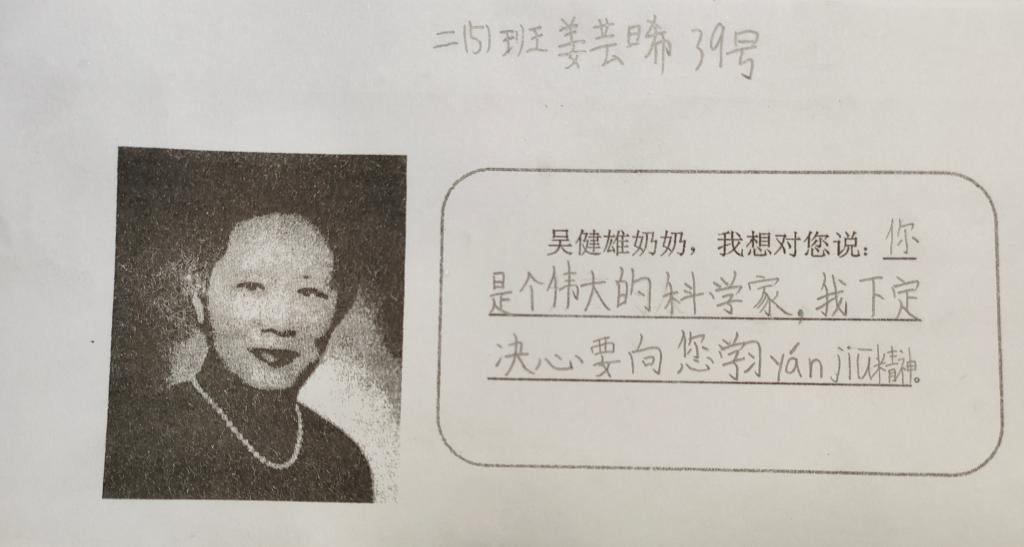 二(5)班姜芸晞 39号
吴健雄奶奶，我想对您说：你
是个伟大的科学家，我下定
决心要向您学习yán jiū精神。